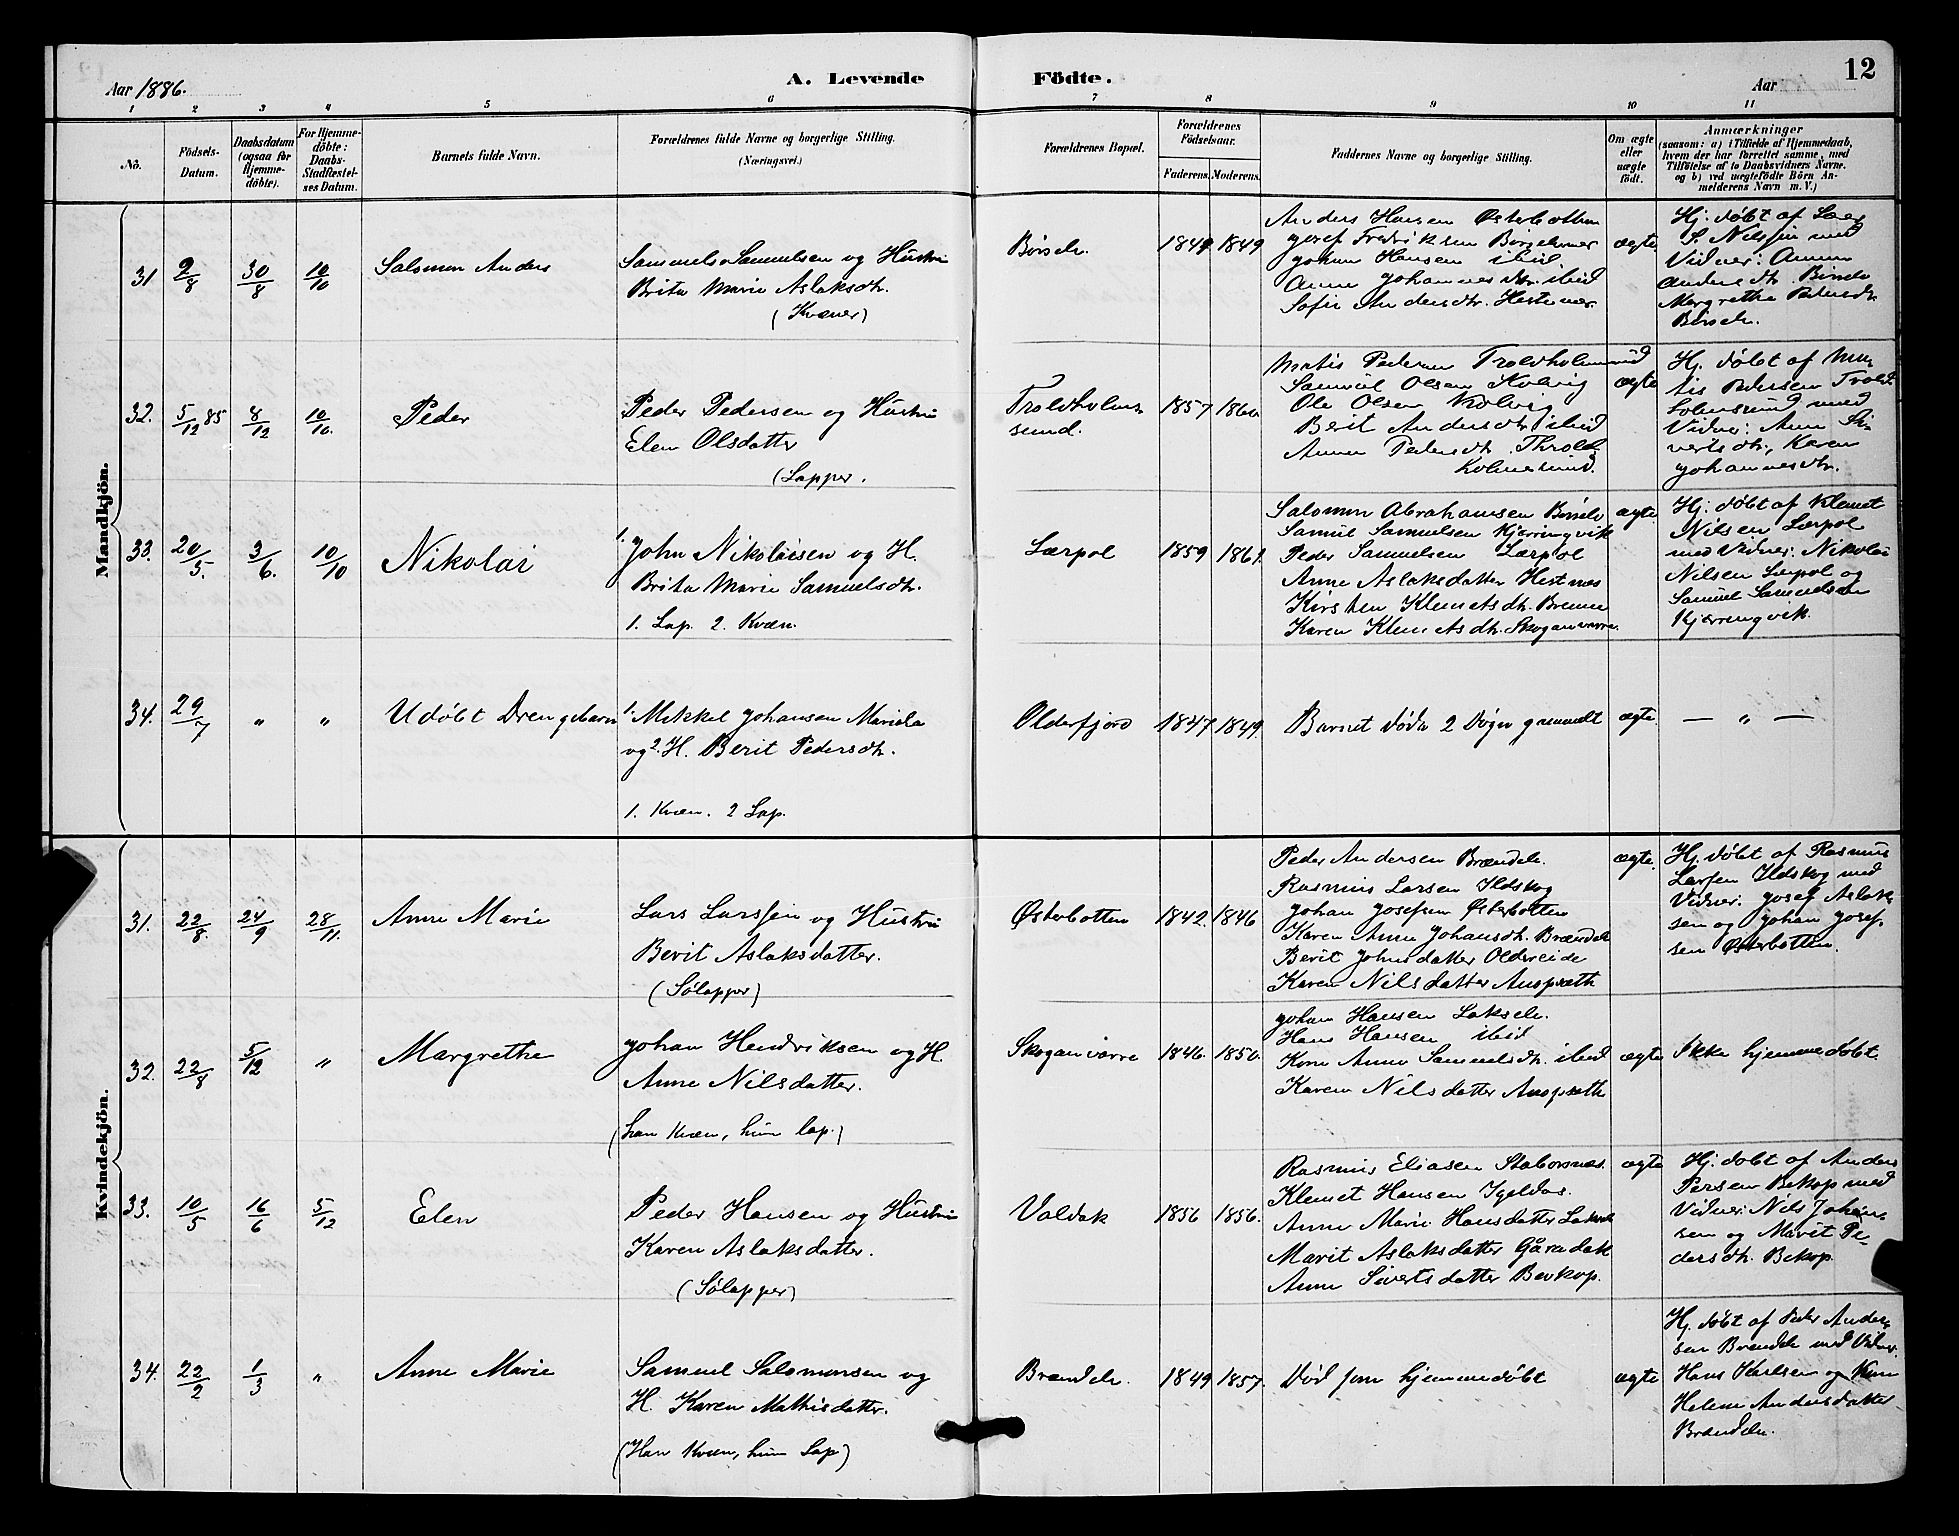 Aar 1886.
A. Levende Födte.
Aar
12
1 2 3 4 5 6 7 8 9 10 11
No.
Födsels-Datum.
Daabsdatum (ogsaa for Hjemme-döbte).
For Hjemme-döbte: Daabs-Stadfæstel-ses Datum.
Barnets fulde Navn.
Forældrenes fulde Navne og borgerlige Stilling.
(Næringsvei.)
Forældrenes Bopæl.
Forældrenes Födselsaar.
Faderens. Moderens.
Faddernes Navne og borgerlige Stilling.
Om ægte eller uægte födt.
Anmærkninger
(saasom: a) i Tilfælde af Hjemmedaab,
hvem der har forrettet samme, med
Tilföielse af to Daabsvidners Navne.
og b) ved uægtefödte Börn An-
melderens Navn m. V.)
Mandkjön.
31 2/8 30/8 10/10 Salomon Anders
Samuels. Samuelsen og Hustru
Brita Marie Aslaksdtr.
(Kvæner)
Børsele. 1849 1849
Anders Hansen Østerbotten
Josef Fredriksen Børselvnes
Johan Hansen ibid
Anne Johannesdtr. ibid
Sofie Andersdtr. Hestenes.
ægte
Hj. døbt af Lars
S. Nilssen med
Vidner: Anna
Andersdtr. Børsele
Margrethe Pedersdtr.
Børsele.
32. 5/12 85 8/12 10/10. Peder
Peder Pedersen og Hustru
Elen Olsdatter
(Lapper.
Troldholm-
sund. 1857 1860
Matis Pedersen Troldholmsund
Samuel Olsen Kolvig
Ole Olsen Kolvig
Berit Andersdtr. ibid
Anna Pedersdtr. Throld-
holmesund.
ægte
Hj. døbt af Ma-
tis Pedersen Trold-
holmsund med
Vidner: Anna Si-
vertsdtr., Karen
Johannesdtr.
33. 20/5. 3/6. 10/10 Nikolai
1. John Nikolaisen og H.
Brita Marie Samuelsdtr.
1. Lap. 2. Kvæn.
Lærpol 1859 1861.
Salomon Abrahamsen Børsele
Samuel Samuelsen Kjærringvik
Peder Samuelsen Lærpol
Anne Aslaksdatter Hestnes
Kirsten Klemetsdtr. Brenne
Karen Klemetsdtr. Skoganvarre.
ægte
Hj. døbt af Klemet
Nilsen Lærpol
med Vidner: Nikolai
Nilsen Lærpol og
Samuel Samuelsen
Kjærringvik.
34. 29/7 " " Udøbt Drengebarn
1. Mikkel Johansen Mariela
og 2. H. Berit Pedersdtr.
1. Kvæn. 2 Lap.
Olderfjord 1847 1849.
Barnet døde 2 Døgn gammelt ægte. — " —
Kvindekjön.
31. 22/8. 24/9 28/11. Anne Marie
Lars Larssen og Hustru
Berit Aslaksdatter.
(Sølapper)
Østerbotten 1842. 1846
Peder Andersen Brændele.
Rasmus Larsen Ildskog
Johan Josefsen Østerbotten
Karen Anna Johansdtr. Brændele
Berit Johnsdatter Oldereide
Karen Nilsdatter
ægte.
Hj. døbt af Rasmus
Larsen Ildskog med
Vidner: Josef Aslak-
sen og Johan Josef-
sen Østerbotten.
32. 22/8 5/12 " Margrethe
Johan Hendriksen og H.
Anne Nilsdatter.
(han Kvæn, hun lap.)
Skoganvarre 1846. 1850.
Johan Hansen Laksele.
Hans Hansen ibid
Anne Samuelsdtr. ibid
Karen Nilsdatter
ægte Ikke hjemmedøbt.
33. 10/5 16/6 5/12 Elen
Peder Hansen og Hustru
Karen Aslaksdatter.
(Sølapper)
Valdak 1856 1856.
Rasmus Eliasen Staborsnes.
Klemet Hansen Igeldas.
Anne Marie Hansdatter Laksele
Marit Aslaksdatter Gåradak
Anne Sivertsdatter Bevkop.
ægte
Hj. døbt af Anders
Persen Bekop med
Vidner: Nils Johan-
sen og Marit Pe-
dersdtr. Bekop.
34. 22/2 1/3 " Anne Marie
Samuel Salomonsen og
H. Karen Mathisdatter.
(Han Kvæn, hun Lap)
Brændele. 1849 1857.
Død som hjemmedøbt ægte
Hj. døbt af Peder Ander-
sen Brændele med Vidner.
Hans Karlsen og
Helene Andersdatter
Brændele.